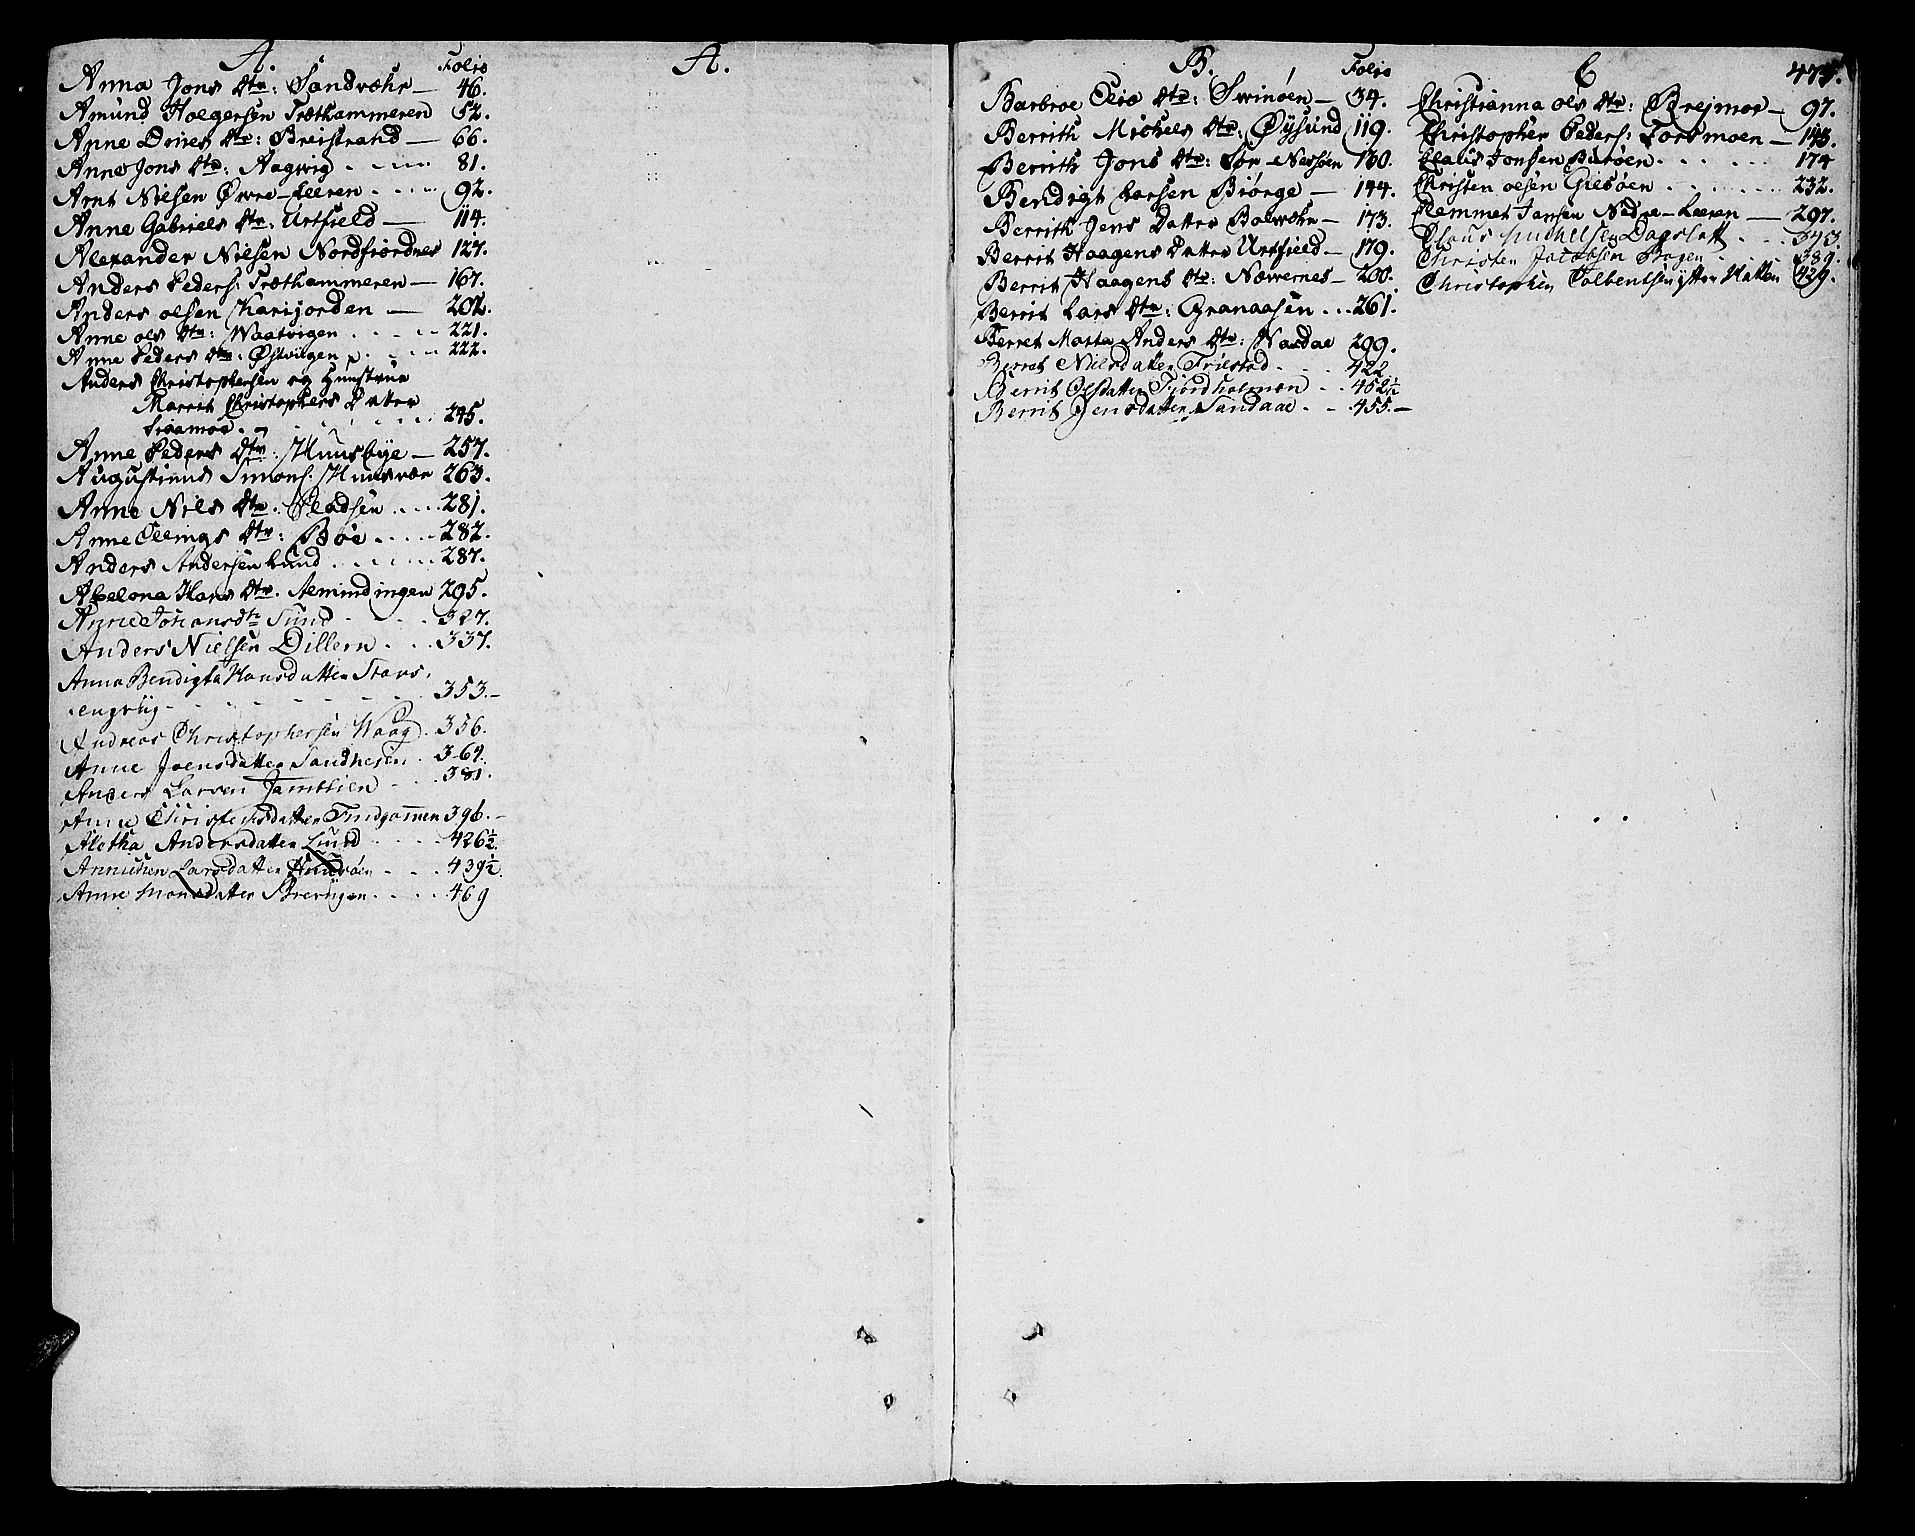 A. Folio
Anna Jons Dtr: Sandvæhr — 46.
Amund Holgersen Træthammeren 52.
Anne Dines Dtr: Breistrand — 66.
Anne Jons Dtr: Aagvig . . . . 81.
Arnt Nielsen Øvre-Leeren . . . . 92.
Anne Gabriels Dtr: Urtfield — 114.
Alexander Nielsen Nordfiordnes 127.
Anders Peders: Træthammeren — 167.
Anders olsen Karijorden — 202.
Anne ols Dtr: Waatvigen . . . . 221.
Anne Peders Dtr: Østvigen . . . . 222.
Anders Christophersen og Hunstrue
Marrit Christophers Datter
. . . . 245.
Anne Peders Dtr: Huusbye — 257.
Augustinus Simons: Huusvær 263.
Anne Niels Dtr. Pladsen . . . . 281.
Anne Ellings Dtr: Böe . . . . . 282.
Anders Andersen Lund . . . . . . 287.
Abelona Hans Dtr. Aemindingen 295.
Anne Johansdtr Sund . . . . 327.
Anders Nielsen Dillern . . . 337.
Anna Bendigta Hansdatter Stors-
engvig . . . . . . . . 353.—
Andreas Christophersen Waag . 356.
Anne Joensdatter Sandnesen . 364.
Anders Larsen Jamtlien - 381.
Anne Christensdatter Findgamen 396.—
Aletha Andersdatter Lund . . . . 426½.
Annichen Larsdatter . . . 439½.
Anne Monsdatter Brevigen . . . . . 469
A.
B. Folio
Barbroe Elia Dtr: Svinöen — 34.
Berrith Michels Dtr: Öysund 119.
Berrith Jons Dtr: Sör-Nessen 130.
Bendigt Larsen Biörge — 144.
Berrith Jens Datter Bolwæhr — 173.
Berrit Haagens Datter Urtfield — 179.
Berrit Haagens Dtr: Næwernes — 200.
Berrit Lars Dtr: Granaasen . . . 261.
Berret Marta Anders Dtr: Nasdae 299.
Berret Nielsdatter Friestad . . . . 422
Berrit Olsdatter Fjordholmen . . . 452½
Berrit Jensdatter Sandaae . . . 455.—
C 474.
Christianna ols Dtr: Brejmoe — 97.
Christopher Peders: Forsmoen — 143.
Claus Jonsen Buröen . . . . . . 174
Christen olsen Giesöen . . . . . . . 232.
Clemmet Jansen Nedre-Leeren — 297.
Claus Michelsen Dagslaft . . . 343.
Christen Jacobsen Bogen . . . 389.
Christopher Tolbentsen ytter Hatten 429.